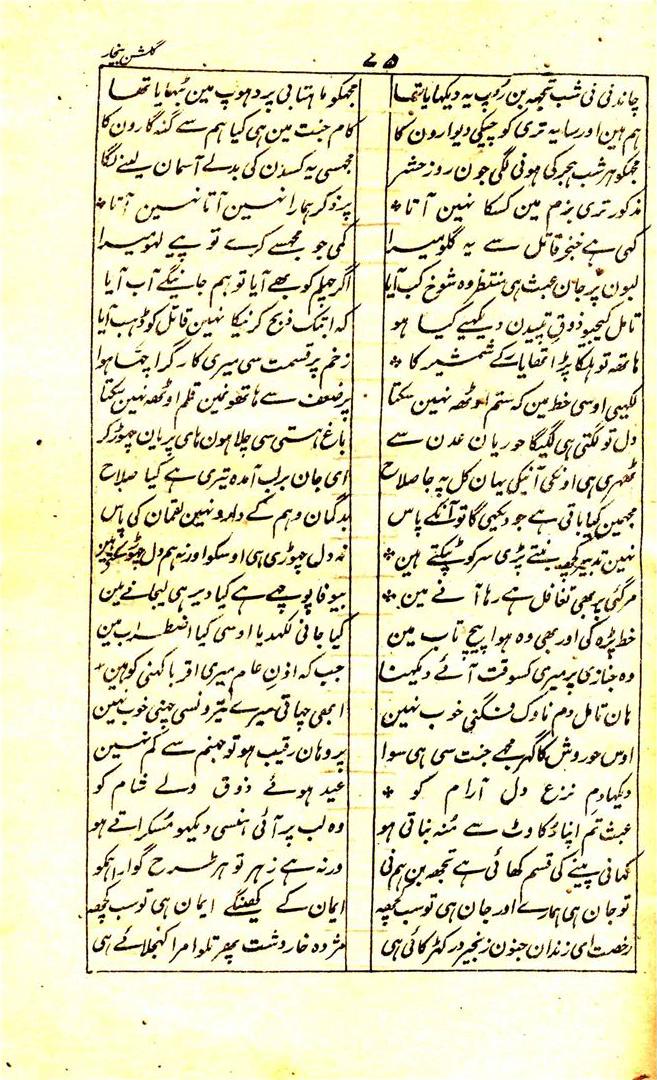 گلشن بیخار
۷۵
چاندنی نی شب تجھہ بن روپ یہ دیکھایا تھا
مجھکو ماہتابی پر دھوپ مین بٹھایا تھا
ہم ہین اور سایہ تری کوچیکی دیوارون کا
کام جنت مین ہی کیا ہم سے گنہ گارون کا
مجھکو ہر شب ہجر کی ہونی لگی جون روز حشر
مجھسی یہ کسدن کی بدلے آسمان لینے لگا
مذکور تری بزم مین کسکا نہین آتا
پر ذکر ہمارا نہین آتا نہین آتا
کہی ہے خنجر قاتل سے یہ گلو میرا
کمی جو مجھسے کرے تو پیے لہو میرا
لبون پر جان عبث ہی منتظر وہ شوخ کب آیا
اگر چہلم کو بھے آیا تو ہم جانینگے اب آیا
تامل کیجیو ذوق تپیدن دیکہیے کیا ہو
کہ ابتک ذبح کرنیکا نہین قاتل کو ڈہب آیا
ہاتھہ تو ہلکا پڑا تھا یارکے شمشیر کا
زخم پر قسمت سی میری کارگر اچہا ہوا
لکہیی اوسی خط مین کہ ستم اوٹھہ نہین سکتا
پر ضعف سے ہاتھونمین قلم اوٹھہ نہین سکتا
دل تو لگتی ہی لگیگا حوریان عدن سے
باغ ہستی سی چلا ہون ہای پریان چھوڑ کر
ٹھہری ہی اونکی آنیکی یہان کل پہ جا صلاح
ای جان برلب آمدہ تیری ہے کیا صلاح
مجھمین کیا باقی ہے جو دیکھی گا تو آنکے پاس
بدگمان وہم کے دارو نہین لقمان کی پاس
نہین تدبیر کچھہ بنتے پڑی سر کو پٹکتے ہین
نہ دل چھوڑی ہی اوسکو اور نہ ہم دل چھوڑ سکتے ہین
مرگئی پر بھی تغافل ہے رہا آنے مین
بیوفا پوچھے ہے کیا دیر ہی لیجانے مین
خط پڑہ کی اور بھی وہ ہوا پیچ تاب مین
کیا جانی لکھدیا اوسی کیا اضطراب مین
وہ جنازی پر میری کسوقت آئے دیکہنا
جب کہ اذن عام میری اقربا کہنی کو ہین
ہان تامل دم ناوک فگنی خوب نہین
ابھی چھاتی میرے تیرونسی چھنی خوب نہین
اوس حوروش کا گہر مجھے جنت سی ہی سوا
پر وہان رقیب ہو تو جہنم سے کم نہین
دیکھا دم نزع دل آرام کو
عید ہوئے ذوق ولے شام کو
عبث تم اپنا رکاوٹ سے منہ بناتی ہو
وہ لب پر آئی ہنسی دیکھو مسکراتے ہو
کھانی پینے کی قسم کھائی ہے تجھہ بن ہمنی
ورنہ ہے زہر تو ہر طرح گوارا ہمکو
تو جان ہی ہمارے اور جان ہی تو سب کچھہ
ایمان کے کہینگے ایمان ہی تو سب کچھہ
رخصت ای زندان جنون زنجیر در کھڑکائی ہی
مژدہ خار دشت پھر تلوا مرا کھجلائے ہی